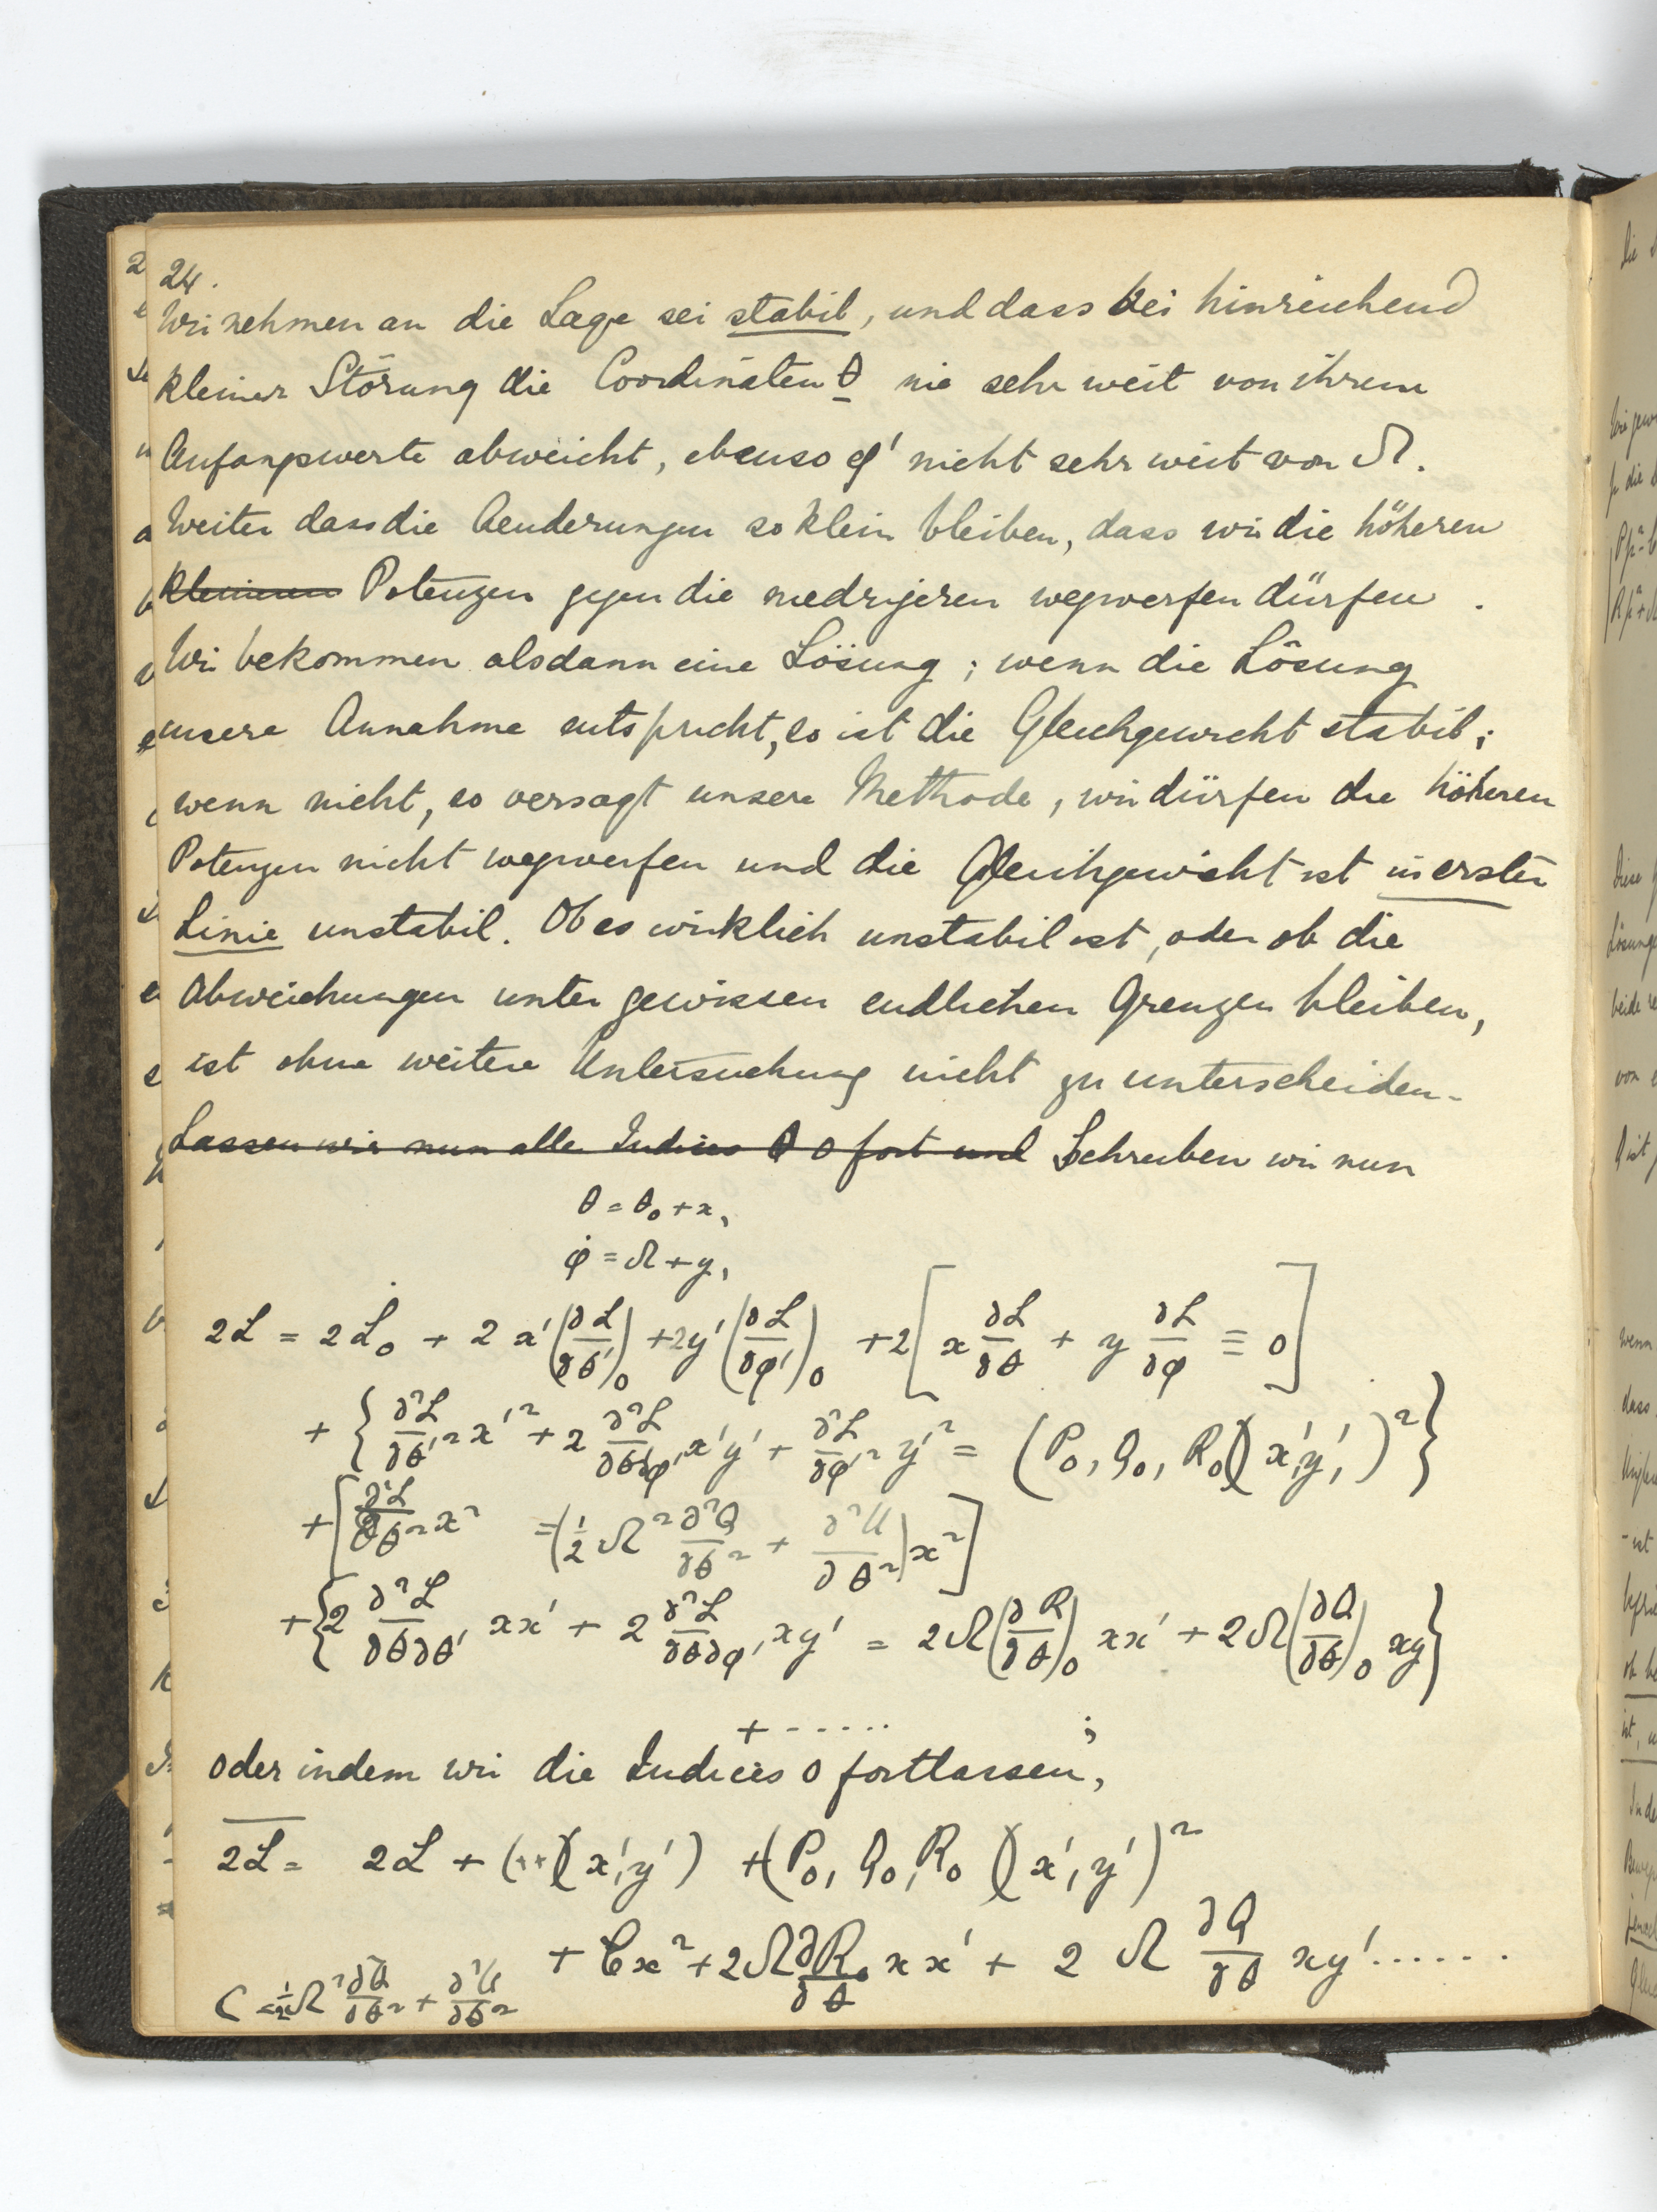 24.
Wir nehmen an die Lage sei stabil, und dass bei hinreichend
kleiner Störung die Coordinäten θ nie sehr weit von ihrem
Anfangswerte abweicht, ebenso φ' nicht sehr weit von Ω.
Weiter dass die Aenderungen so klein bleiben, dass wir die höheren
kleineren Potenzen gegen die niedrigeren wegwerfen dürfen.
Wir bekommen alsdann eine Lösung; wenn die Lösung
unsere Annahme entspricht, so ist die Gleichgewicht stabil;
wenn nicht, so versagt unsere Methode, wir dürfen die höheren
Potenzen nicht wegwerfen und die Gleichgewicht ist in erster
Linie unstabil. Ob es wirklich unstabil ist, oder ob die
Abweichungen unter gewissen endlichen Grenzen bleiben,
ist ohne weitere Untersuchung nicht zu unterscheiden.
Lassen wir nun alle Indices 0 fort und Schreiben wir nun
θ = θ₀ + x,
φ̇ = Ω + y,
2L = 2L₀ + 2x'(∂L/∂θ')₀ + 2y'(∂L/∂φ')₀ + 2[x ∂L/∂θ + y ∂L/∂φ ≡ 0]
+ {∂²L/∂θ'² x'² + 2 ∂²L/∂θ'∂φ' x'y' + ∂²L/∂φ'² y'² = (P₀, Q₀, R₀)(x', y',)²}
+ [∂²L/∂θ² x² = (½ Ω² ∂²Q/∂θ² + ∂²U/∂θ²) x²]
+ {2 ∂²L/∂θ∂θ' xx' + 2 ∂²L/∂θ∂φ' xy' = 2Ω(∂R/∂θ)₀ xx' + 2Ω(∂Q/∂θ)₀ xy}
+ ...... ;
oder indem wir die Indices 0 fortlassen,
2L = 2L + (**)(x', y') + (P₀, Q₀, R₀)(x', y')²
+ Cx² + 2Ω ∂R₀/∂θ xx' + 2 Ω ∂Q/∂θ xy' ......
C = ½Ω² ∂²Q/∂θ² + ∂²U/∂θ²